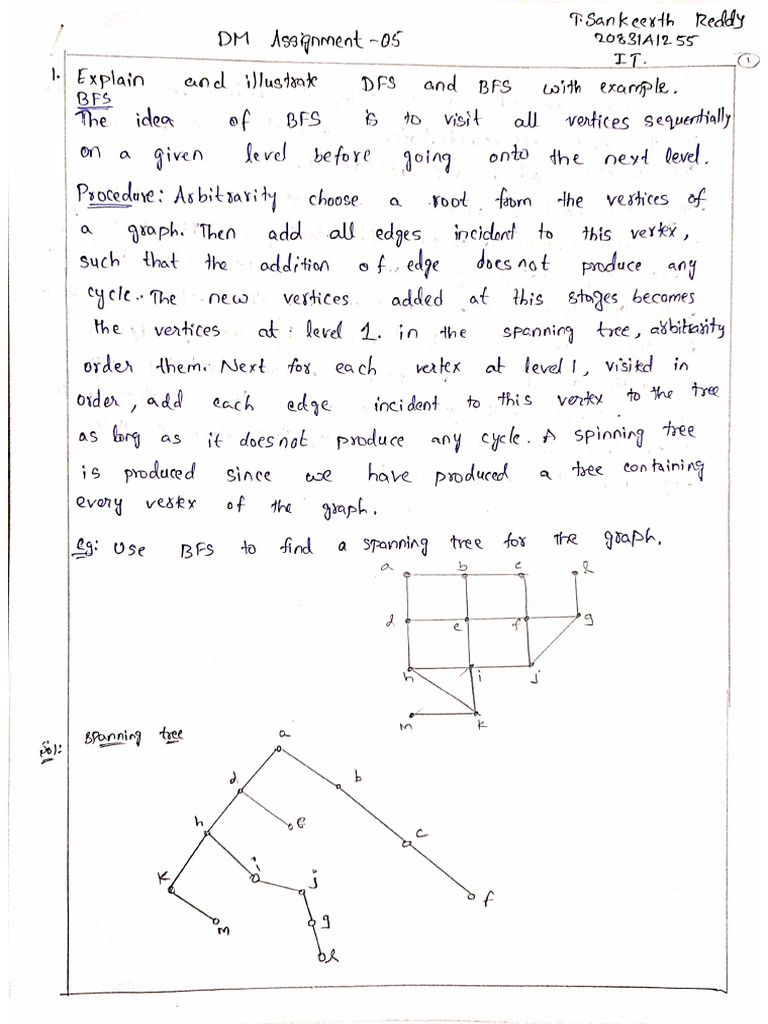 T. Sankeerth Reddy
DM Assignment -05
20831A1255
IT.
1
1. Explain and illustrate DFS and BFS with example.
BFS
The idea of BFS is to visit all vertices sequentially
on a given level before going onto the next level.
Procedure: Arbitrarity choose a root from the vertices of
a graph. Then add all edges incident to this vertex,
such that the addition of edge does not produce any
cycle.. The new vertices added at this stages becomes
the vertices at level 1. in the spanning tree, arbitarity
order them. Next for each vertex at level 1, visited in
order, add each edge incident to this vertex to the tree
as long as it does not produce any cycle. A spinning tree
is produced since we have produced a tree containing
every vertex of the graph.
Eg: Use BFS to find a spanning tree for the graph.
a b c l
d e f g
h i j
m k
Sol: Spanning tree
a
d b
h e c
k i j f
m g
l